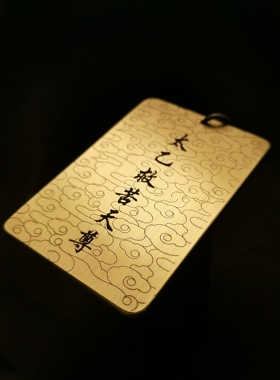 太乙救苦天尊